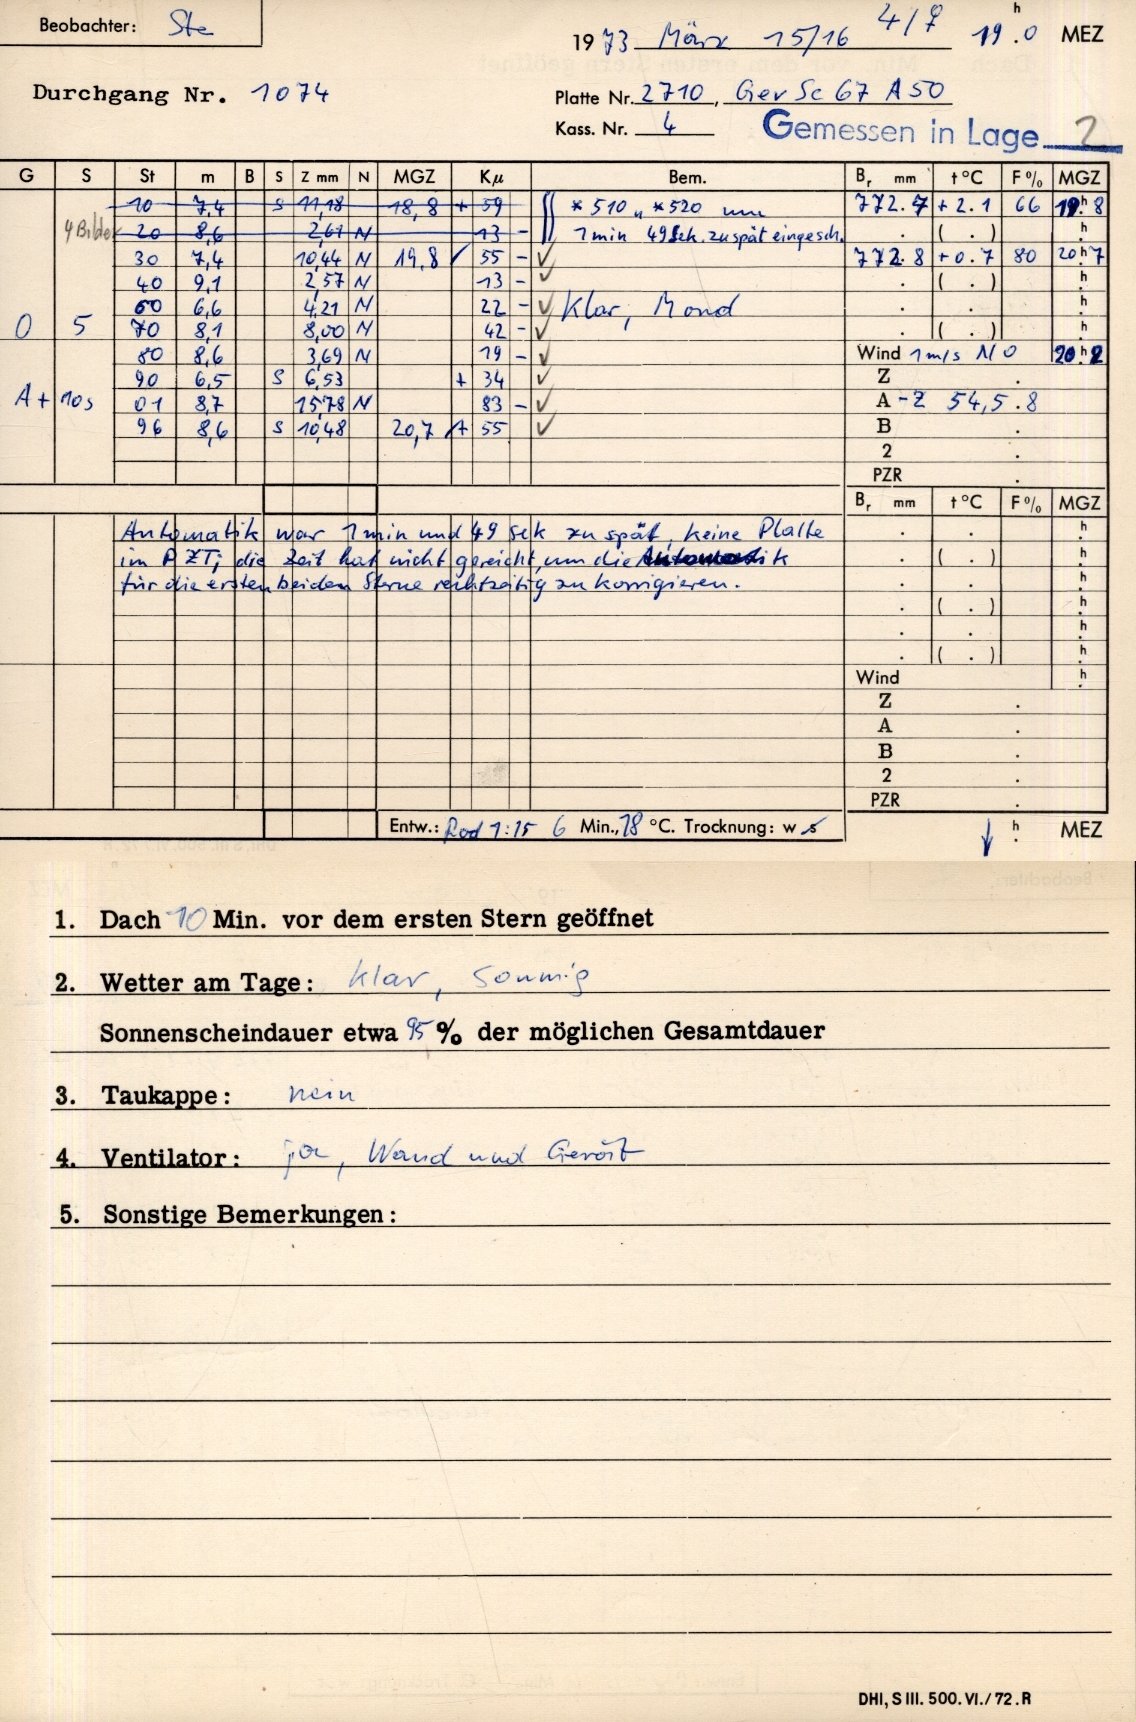 Beobachter: Ste
1973 März 15/16 4/7 19h.0 MEZ
Durchgang Nr. 1074
Platte Nr. 2710, Gev Sc 67 A 50
Kass. Nr. 4
Gemessen in Lage 2
G S St m B S Z mm N MGZ Kμ Bem. Br mm t °C F % MGZ
10 7,4 S 11,18 18,8 + 59 *510 u *520 um 772.7 +2.1 66 19h.8
4 Bilder 20 8,6 2,61 N 13 - 1 min 49 Sek. zu spät eingesch. . ( . ) h.
30 7,4 10,44 N 19,8 ✓ 55 - ✓ 772.8 +0.7 80 20h.7
40 9,1 2,57 N 13 - ✓ . ( . ) h.
60 6,6 4,21 N 22 - ✓ Klar, Mond . . h.
0 5 70 8,1 8,00 N 42 - ✓ . ( . ) h.
80 8,6 3,69 N 19 - ✓ Wind 1 m/s NO 20h.2
90 6,5 S 6,53 + 34 ✓ Z .
A + 10s 01 8,7 15,78 N 83 - ✓ A - Z 54,5.8
96 8,6 S 10,48 20,7 + 55 ✓ B .
2 .
PZR .
Br mm t °C F % MGZ
Automatik war 1 min und 49 sek zu spät, keine Platte . . h.
im PZT; die Zeit hat nicht gereicht, um die Automatik . ( . ) h.
für die ersten beiden Sterne rechtzeitig zu korrigieren. . . h.
. ( . ) h.
. . h.
. ( . ) h.
Wind h.
Z .
A .
B .
2 .
PZR .
Entw.: Rod 1:15 6 Min., 18 °C. Trocknung: w s ↓ h. MEZ
1. Dach 10 Min. vor dem ersten Stern geöffnet
2. Wetter am Tage: klar, sonnig
Sonnenscheindauer etwa 95 % der möglichen Gesamtdauer
3. Taukappe: nein
4. Ventilator: ja, Wand und Gerüst
5. Sonstige Bemerkungen:
DHI, S III. 500. VI. / 72. R